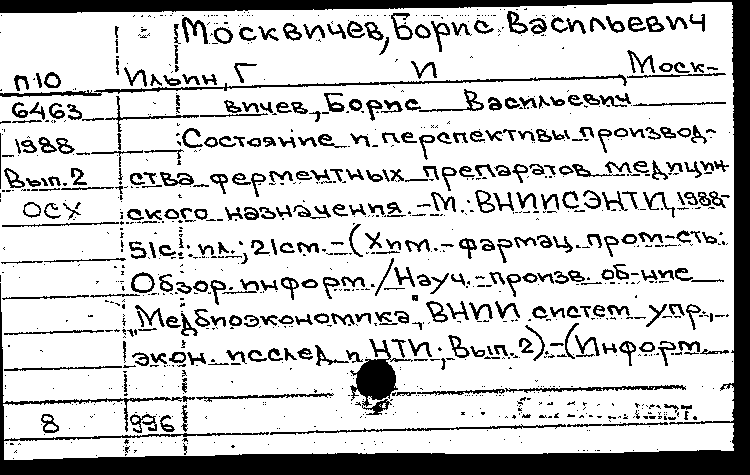 Москвичев, Борис Васильевич
П10 Ильин, Г И , Моск-
6463 вичев, Борис Васильевич
1988 Состояние и перспективы производ-
Вып.2 ства ферментных препаратов медицин
ОСХ ского назначения.-М.:ВНИИСЭНТИ, 1988-
51с.:ил.; 21см.-(Хим.-фармац. пром-сть:
Обзор. информ./Науч.-произв. об-ние
"Медбиоэкономика", ВНИИ систем упр.,
экон. исслед. и НТИ; Вып.2)-(Информ.
8 996